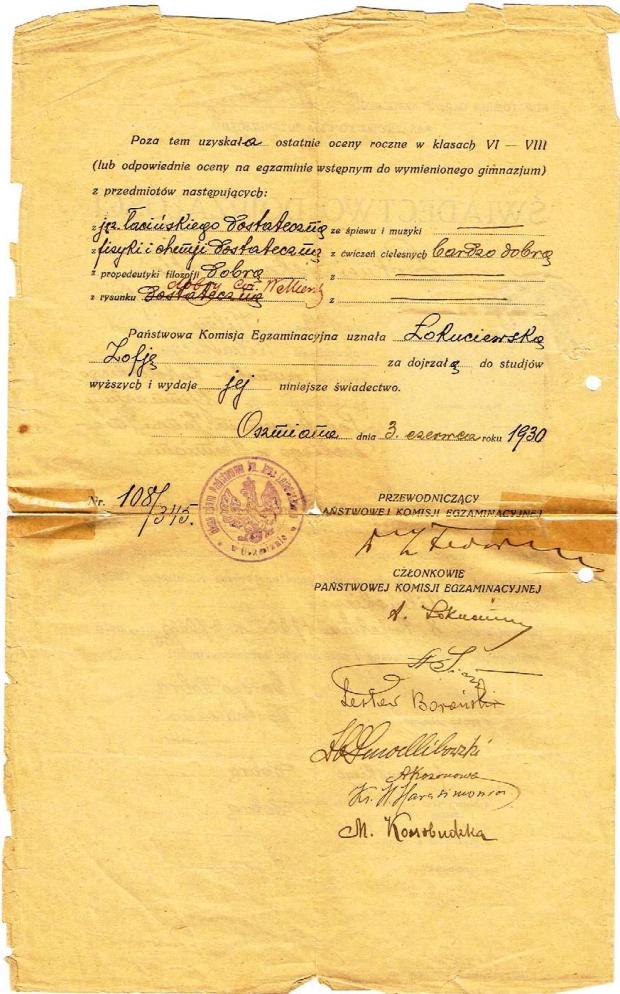 Poza tem uzyskała ostatnie oceny roczne w klasach VI — VIII
(lub odpowiednie oceny na egzaminie wstępnym do wymienionego gimnazjum)
z przedmiotów następujących:
z jęz. łacińskiego dostateczną ze śpiewu i muzyki
z fizyki i chemji dostateczną z ćwiczeń cielesnych bardzo dobrą
z propedeutyki filozofji dobrą z
dobry
z rysunku dostateczną z
Państwowa Komisja Egzaminacyjna uznała Łokuciewską
Zofję za dojrzałą do studjów
wyższych i wydaje jej niniejsze świadectwo.
Oszmiana dnia 3. czerwca roku 1930
Nr. 108/345.
PRZEWODNICZĄCY
PAŃSTWOWEJ KOMISJI EGZAMINACYJNEJ
CZŁONKOWIE
PAŃSTWOWEJ KOMISJI EGZAMINACYJNEJ
A.
Lesław Boroński
A Kozonowa
Ks. W. Harasimowicz
M. Kossobudzka